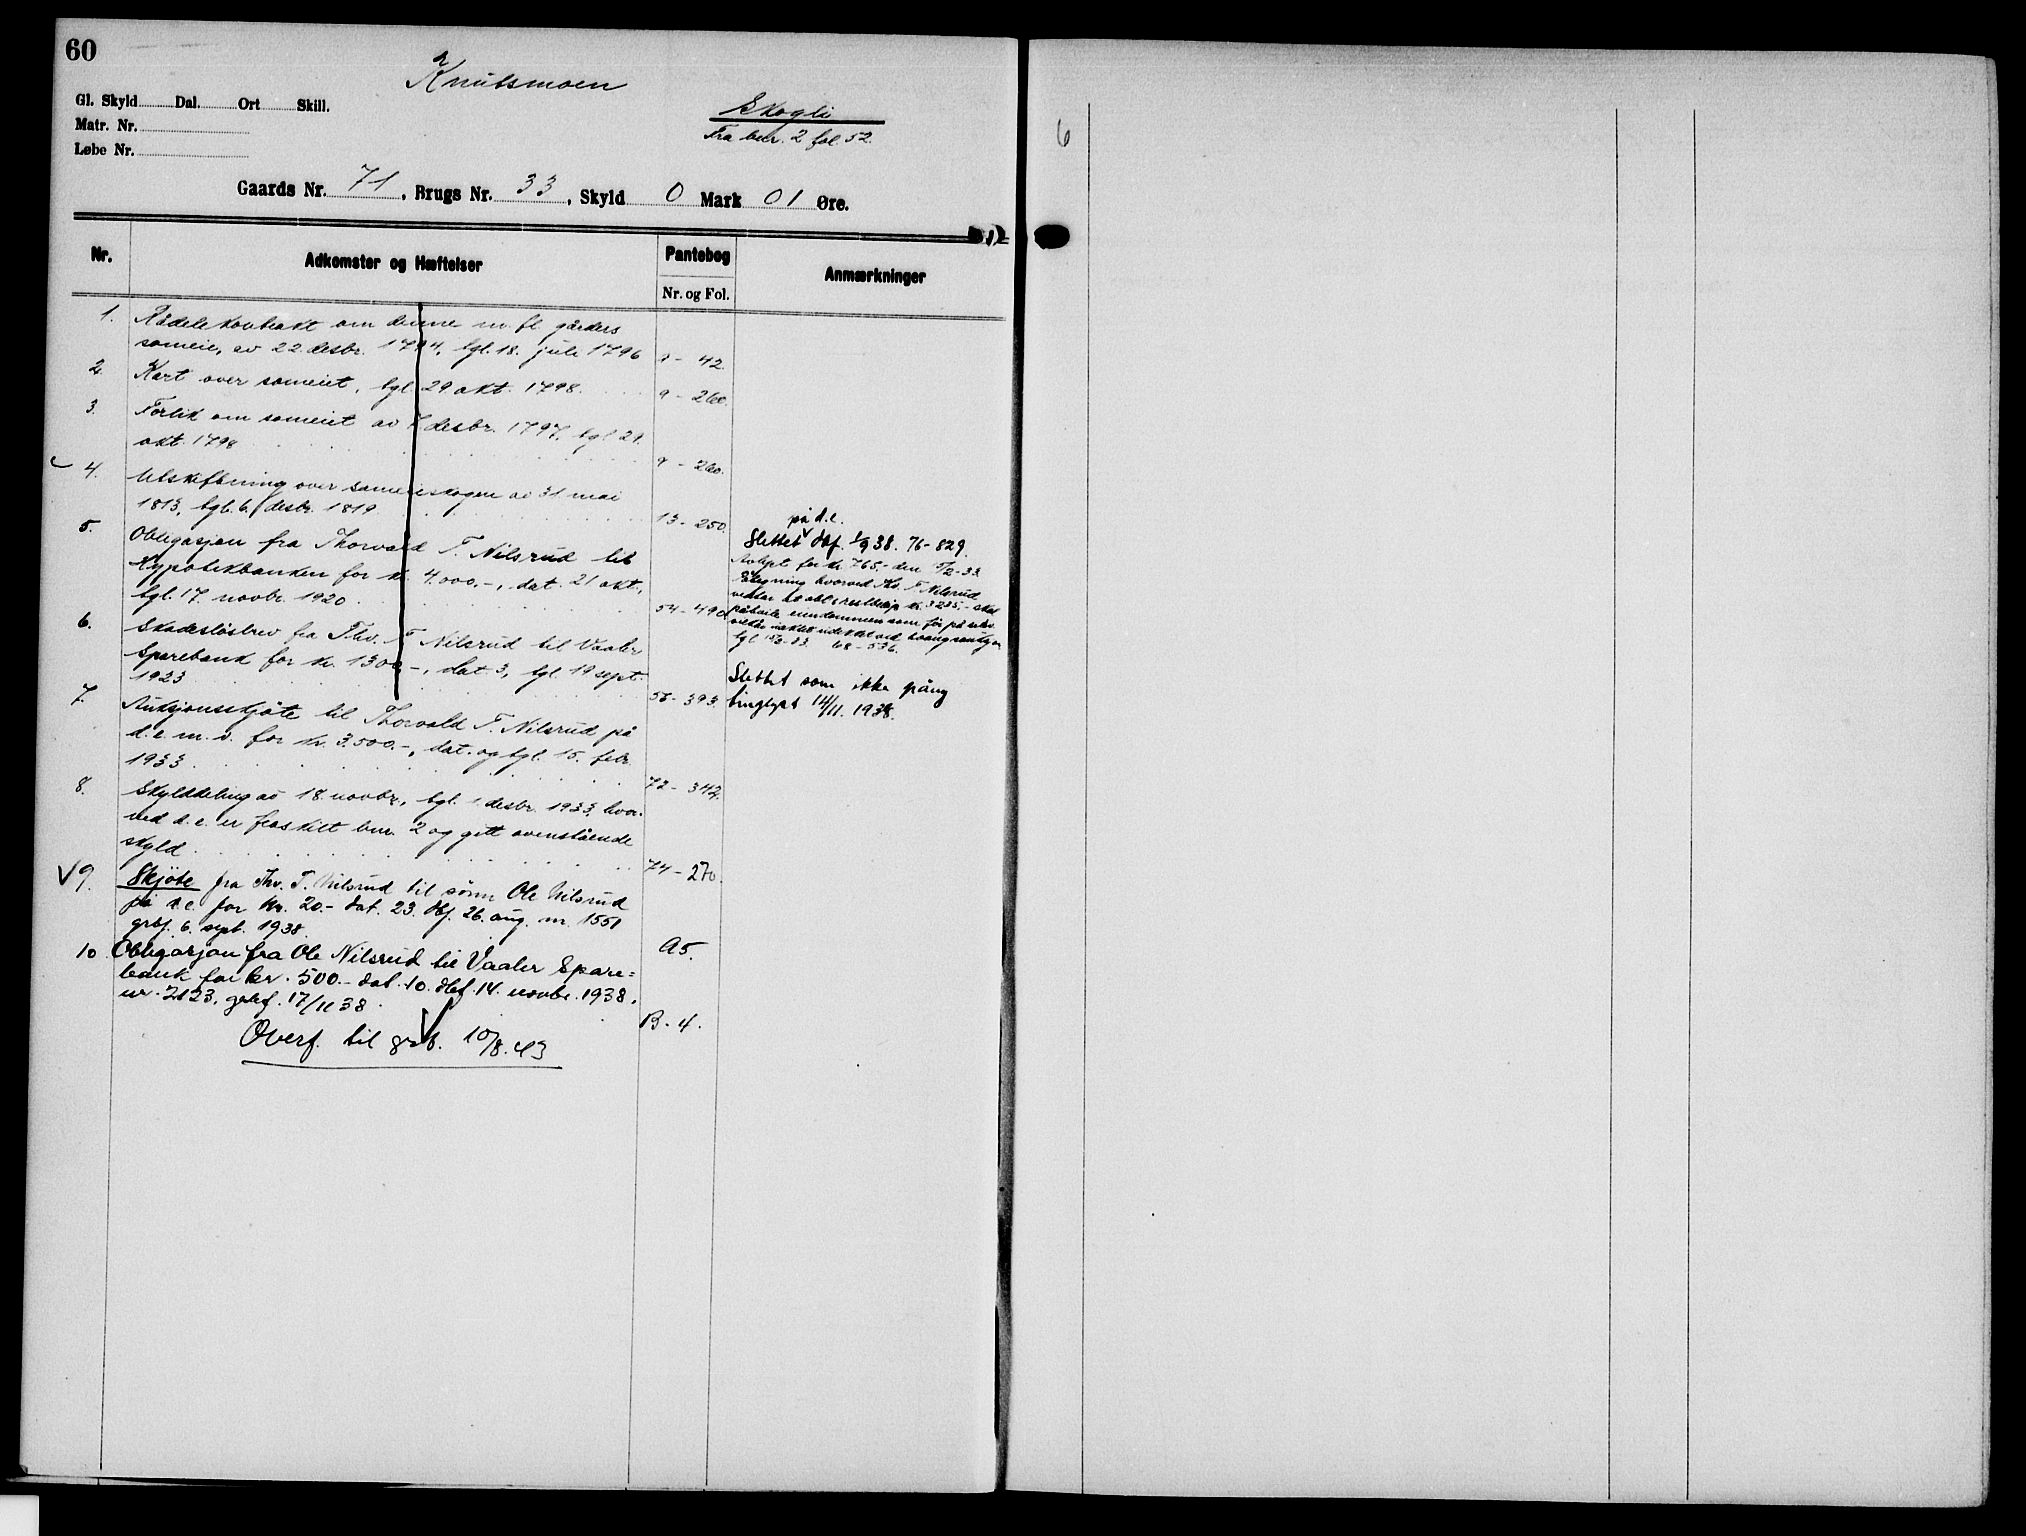 60
Knutsmoen
Gl. Skyld Dal. Ort Skill.
Skogli
Matr. Nr.
Fra bnr. 2 fol 52.
Løbe Nr.
Gaards Nr. 71, Brugs Nr. 33, Skyld 0 Mark 01 Øre.
Nr. Adkomster og Hæftelser Pantebog Anmærkninger
Nr. og Fol.
1. Rådelekontrakt om denne m. fl gårders
someie, av 22 desbr. 1794, tgl. 18. juli 1796 9 - 42.
2. Kart over someiet, tgl. 29 okt. 1798. 9 - 260.
3. Forlik om someiet av 7 desbr. 1797, tgl 29.
okt. 1798 9 - 260.
4. Utskiftning over someieskogen av 31 mai
1813, tgl. 6. desbr. 1819 13 - 250.
5. Obligasjon fra Thorvald T. Nilsrud til
Hypotekbanken for kr. 4000.-, dat. 21 okt.,
tgl. 17. novbr. 1920 54 - 490
på d.e.
Slettet dbf. 1/9 38. 76-829.
Avløpt for kr. 765.- den 5/2-33.
Påtegning hvorved Thv. T. Nilsrud
vedtar at obl.s restbeløp kr. 3235.- skal
påhvile eiendommen som før på
tgl 15/2-33. 68-536.
6. Skadesløsbrev fra Thv. T Nilsrud til Vaaler
Sparebank for kr. 1300.-, dat. 3, tgl. 19 sept.
1923 56 - 393.
Slettet som ikke gång
tinglyst 14/11. 1938.
7. Auksjonsskjøte til Thorvald T. Nilsrud på
d.e. m. v. for kr. 3.500.-, dat. og tgl. 15. febr.
1933 72 - 342.
8. Skylddeling av 18 novbr., tgl. 1. desbr. 1933, hvor-
ved d.e. er fraskilt bnr. 2 og gitt ovenstående
skyld 74 - 270.
9. Skjøte fra Thv. T. Nilsrud til sønn Ole Nilsrud
på d.e. for kr. 20.- dat. 23. dbf. 26. aug. nr. 1551
grbf. 6. sept. 1938. A5.
10 Obligasjon fra Ole Nilsrud til Vaaler Spare=
bank for kr. 500.- dat. 10. dbf. 14. novbr. 1938,
nr. 2123, grbf. 17/11 38. B - 4.
Overf. til grb. 10/8. 43
6